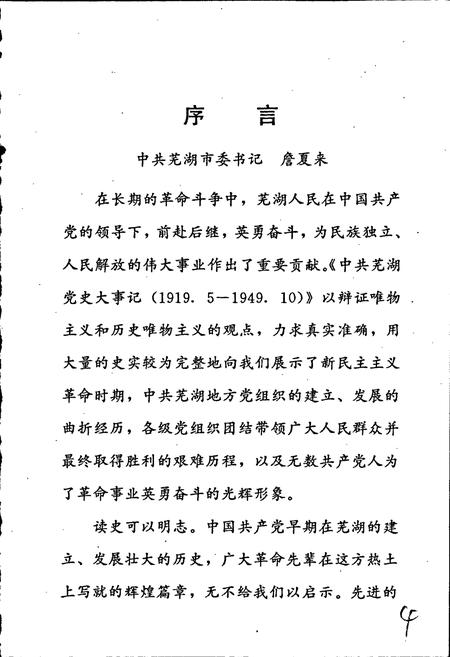 序 言
中共芜湖市委书记 詹夏来
在长期的革命斗争中，芜湖人民在中国共产
党的领导下，前赴后继，英勇奋斗，为民族独立、
人民解放的伟大事业作出了重要贡献。《中共芜湖
党史大事记（1919．5－1949．10）》以辩证唯物
主义和历史唯物主义的观点，力求真实准确，用
大量的史实较为完整地向我们展示了新民主主义
革命时期，中共芜湖地方党组织的建立、发展的
曲折经历，各级党组织团结带领广大人民群众并
最终取得胜利的艰难历程，以及无数共产党人为
了革命事业英勇奋斗的光辉形象。
读史可以明志。中国共产党早期在芜湖的建
立、发展壮大的历史，广大革命先辈在这方热土
上写就的辉煌篇章，无不给我们以启示。先进的
4